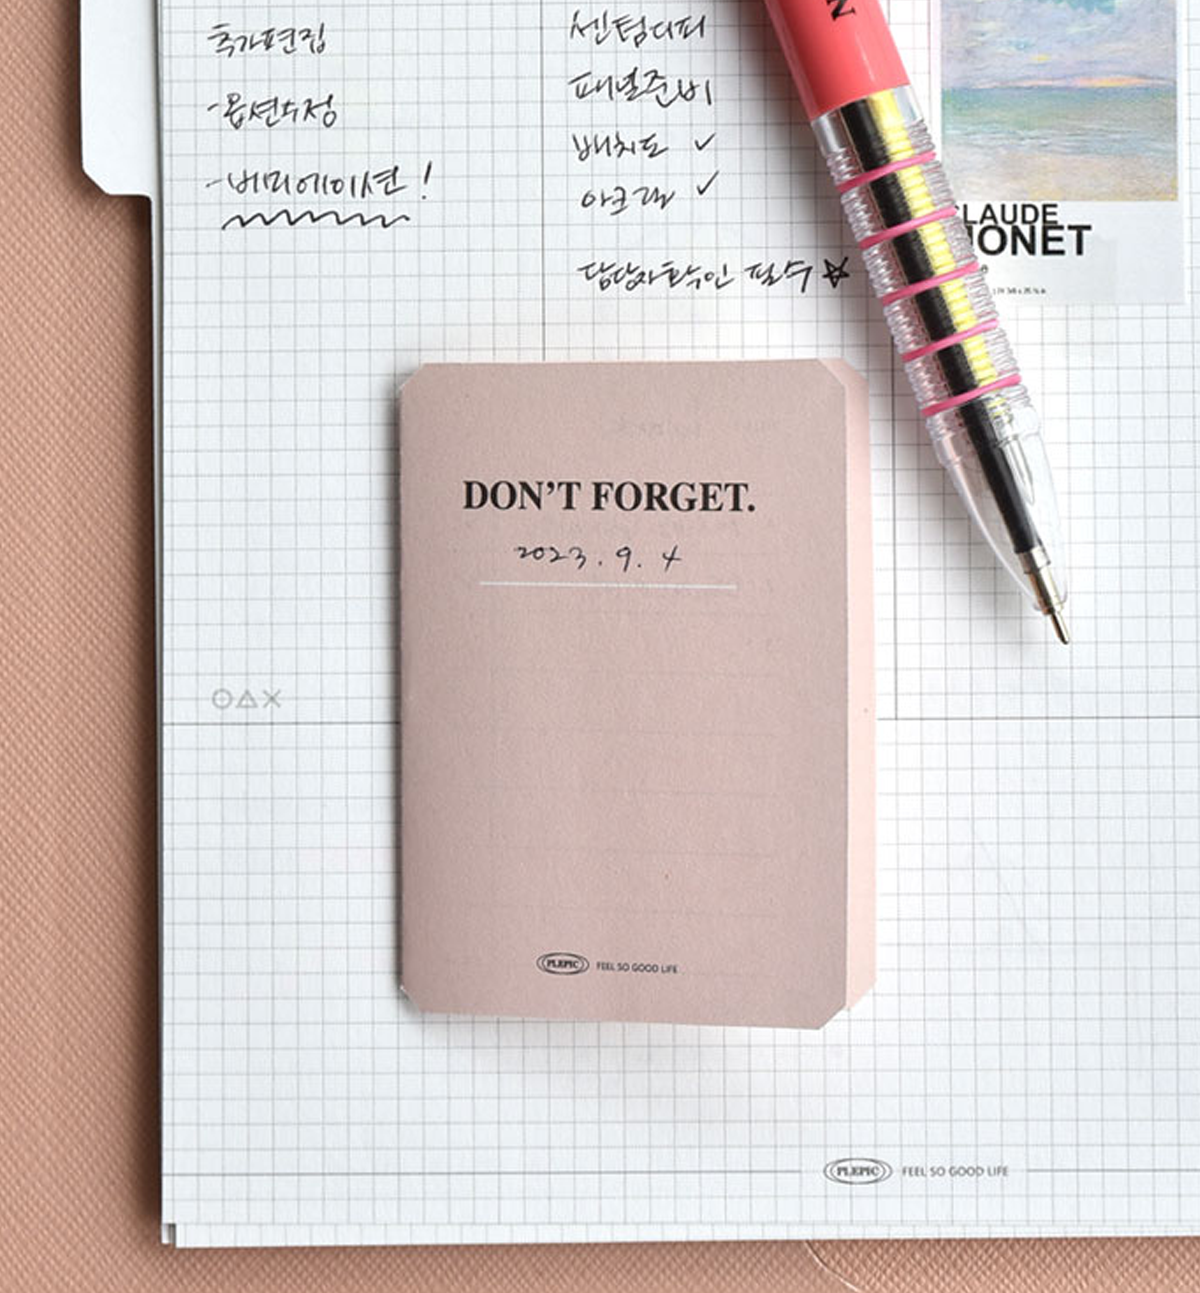 추가편집
-옵션수정
-베리에이션!
센텀디피
패널준비
배치도 ✓
아크릴 ✓
담당자확인 필수☆
N
CLAUDE
MONET
DON'T FORGET.
2023.9.4
PLEPIC FEEL SO GOOD LIFE
PLEPIC FEEL SO GOOD LIFE